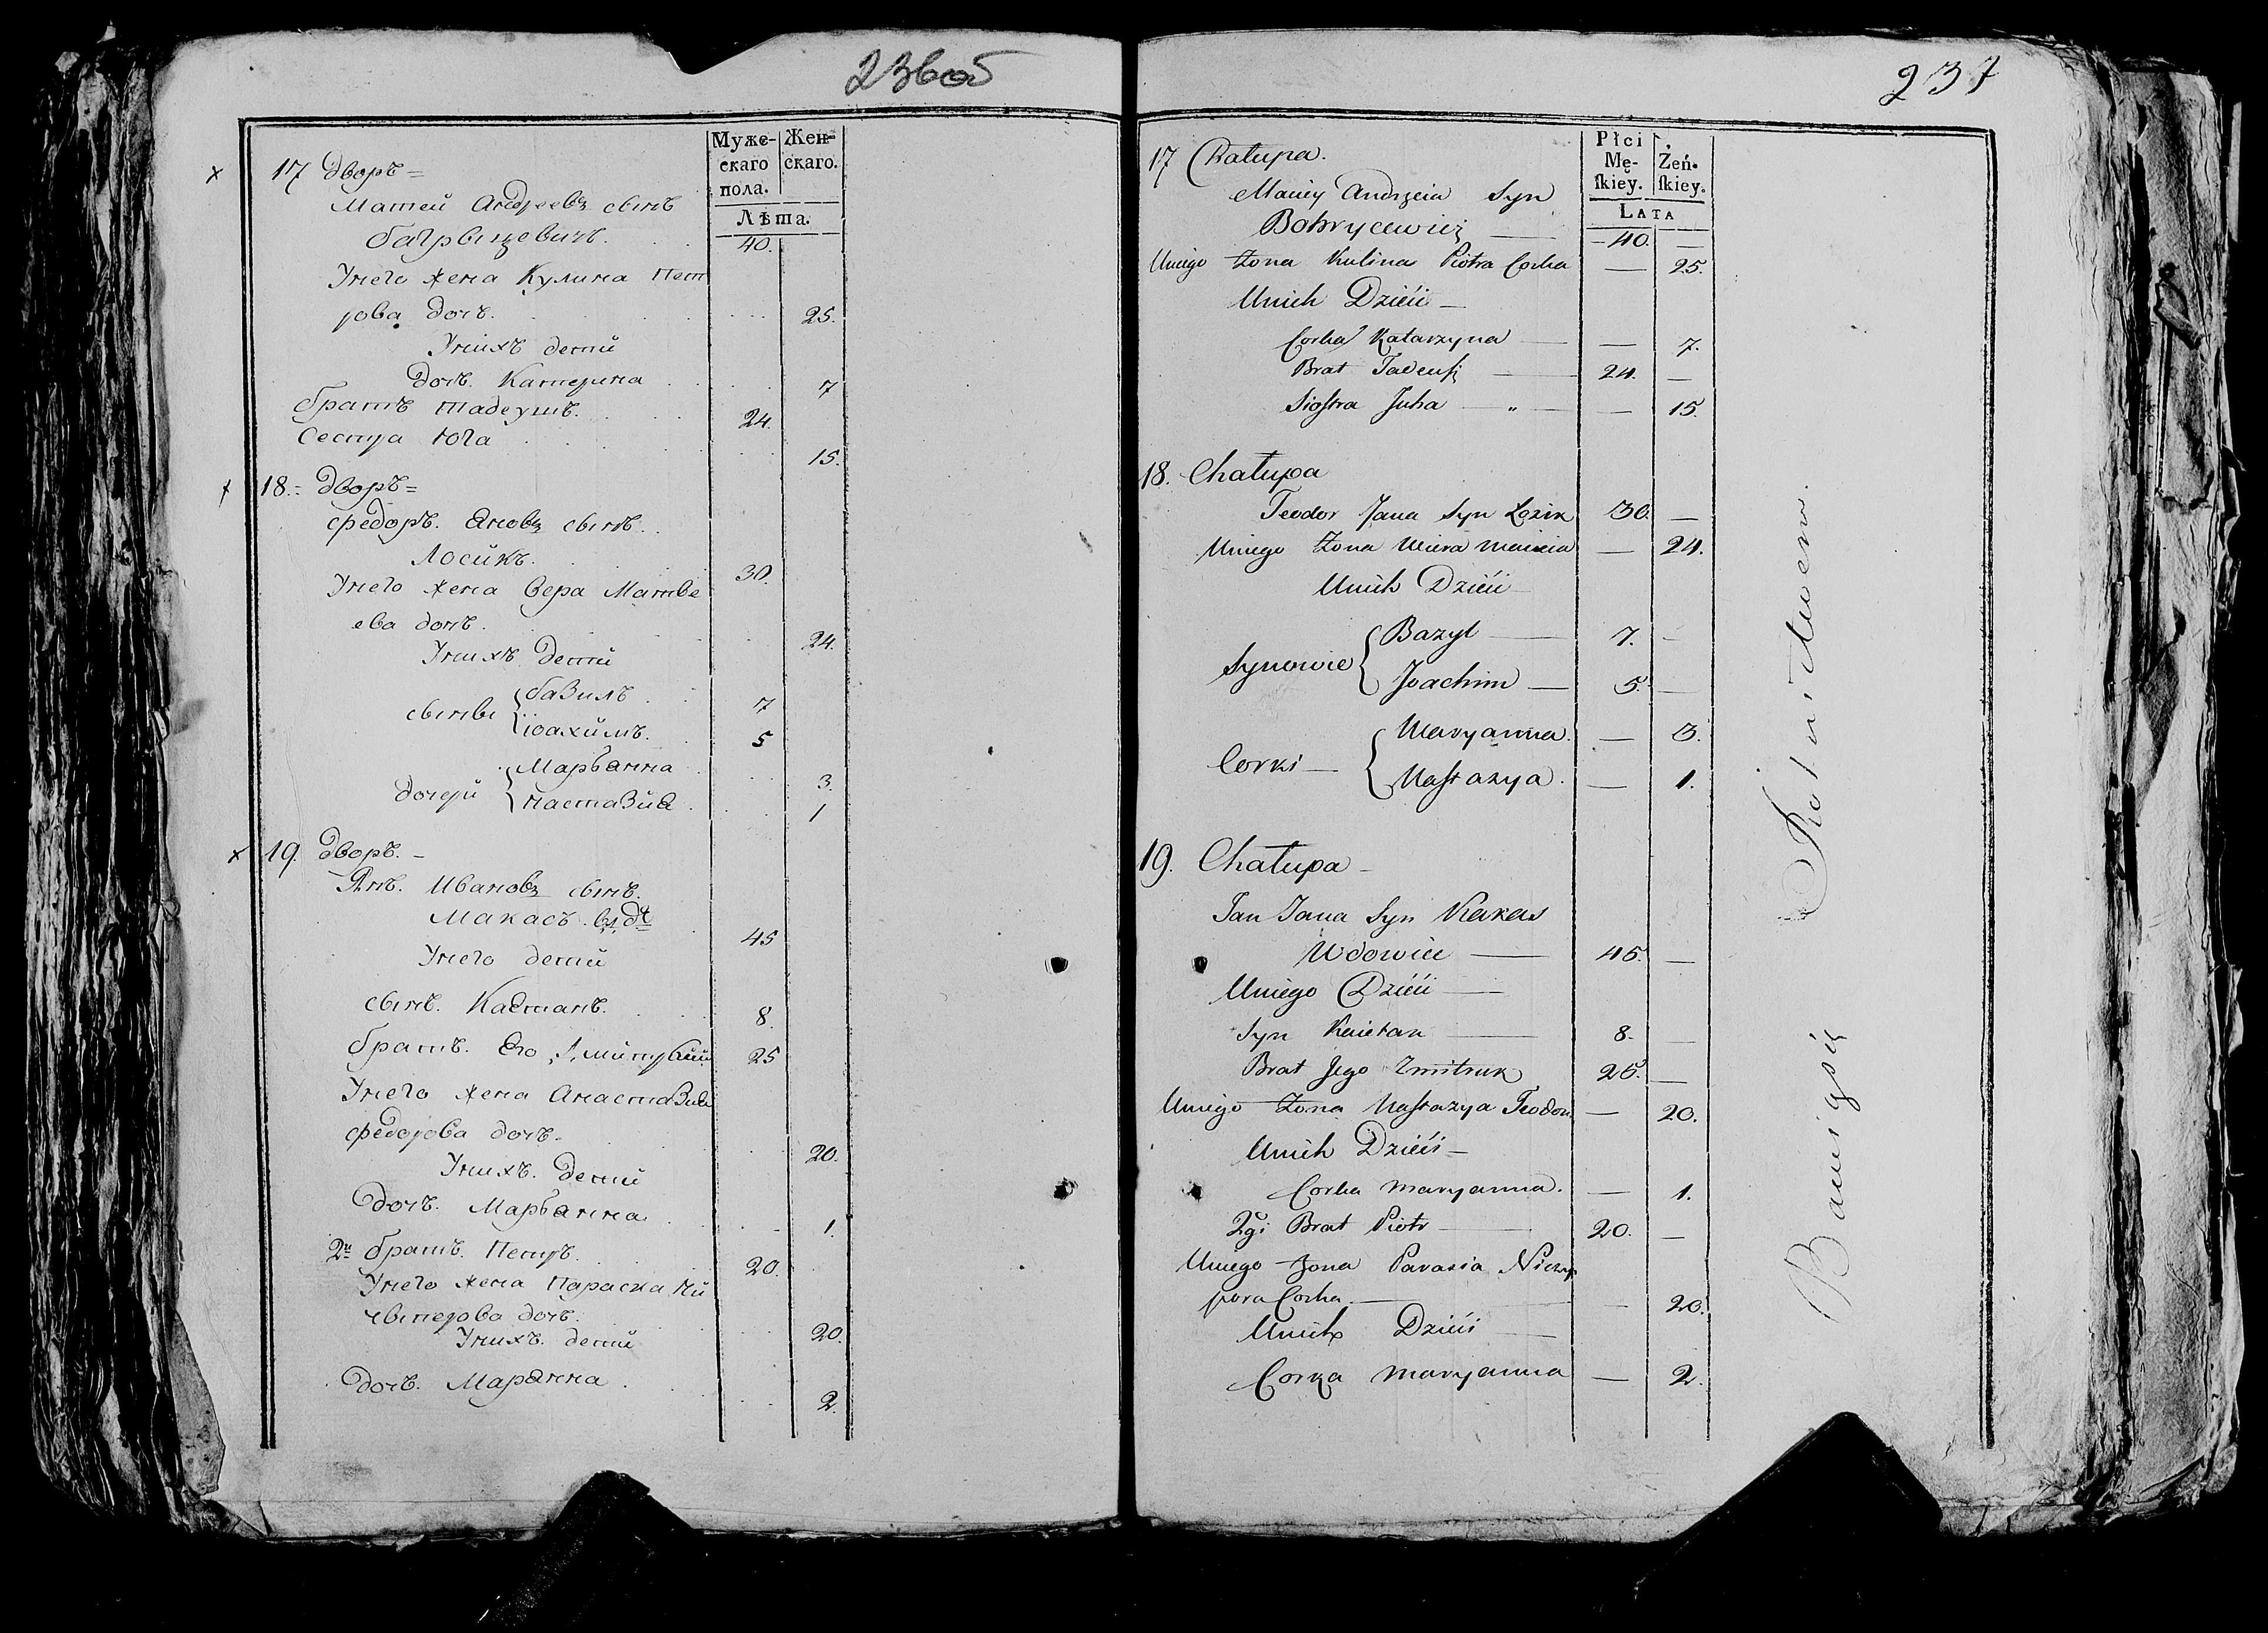 236об
Муже-
скаго
пола.
Жен-
скаго.
Лѣта.
17 дворъ =
Матей Андреевъ сынъ
багрыцевичъ. 40.
Унего жена Кулина Пет
рова дочъ. 25.
Унихъ дети
Дочъ. Катерина 7
братъ тадеушъ. 24.
Сестра Юга 15.
18.= дворъ =
федоръ. Яновъ сынъ.
Лосикъ. 30.
Унего жена вера Матве
ева дочъ. 24.
Унихъ дети
сынвы базилъ 7
іоахимъ. 5
дочери Марьянна 3.
настазия 1
19. дворъ. –
Янъ. Ивановъ сынъ.
Макасъ. 45
Унего дети
сынъ. Каетанъ. 8.
братъ. Его 25
Унего жена Анастазия
федорова дочъ. 20.
Унихъ. дети
дочъ. Марьянна 1.
2й братъ. Петръ. 20.
Унего жена Параска Ни
чыперова дочъ. 20.
Унихъ. дети
Дочъ. Марянна 2.
237
Płci
Mę-
ſkiey.
Żeń-
ſkiey.
LATA
17 Chałupa.
Maciey Andrzeia Syn
40. —
Uniego Żona Kulina Piotra Corka — 25.
Unich Dzieci —
Corka Katarzyna — 7.
Brat Tadeuſz 24. —
Sioſtra Juha — „ — 15.
18. Chałupa
Teodor Jana Syn Łozik 30. —
Uniego Żona Wiera Macieia — 24.
Unich Dzieci —
Synowie Bazyl 7. —
Joachim 5. —
Corki — Maryanna. — 3.
Naſtazya. — 1.
19. Chałupa –
Jan Jana Syn Makas
Wdowiec 45. —
Uniego Dzieci
Syn Kaietan 8. —
Brat Jego Zmitruk 25. —
Uniego Żona Naſtazya Teodora — 20.
Unich Dzieci –
Corka Maryanna. — 1.
2gi Brat Piotr 20. —
Uniego Żona Paraska Niczy
pora Corka — 20.
Unich Dzieci
Corka Maryanna — 2.